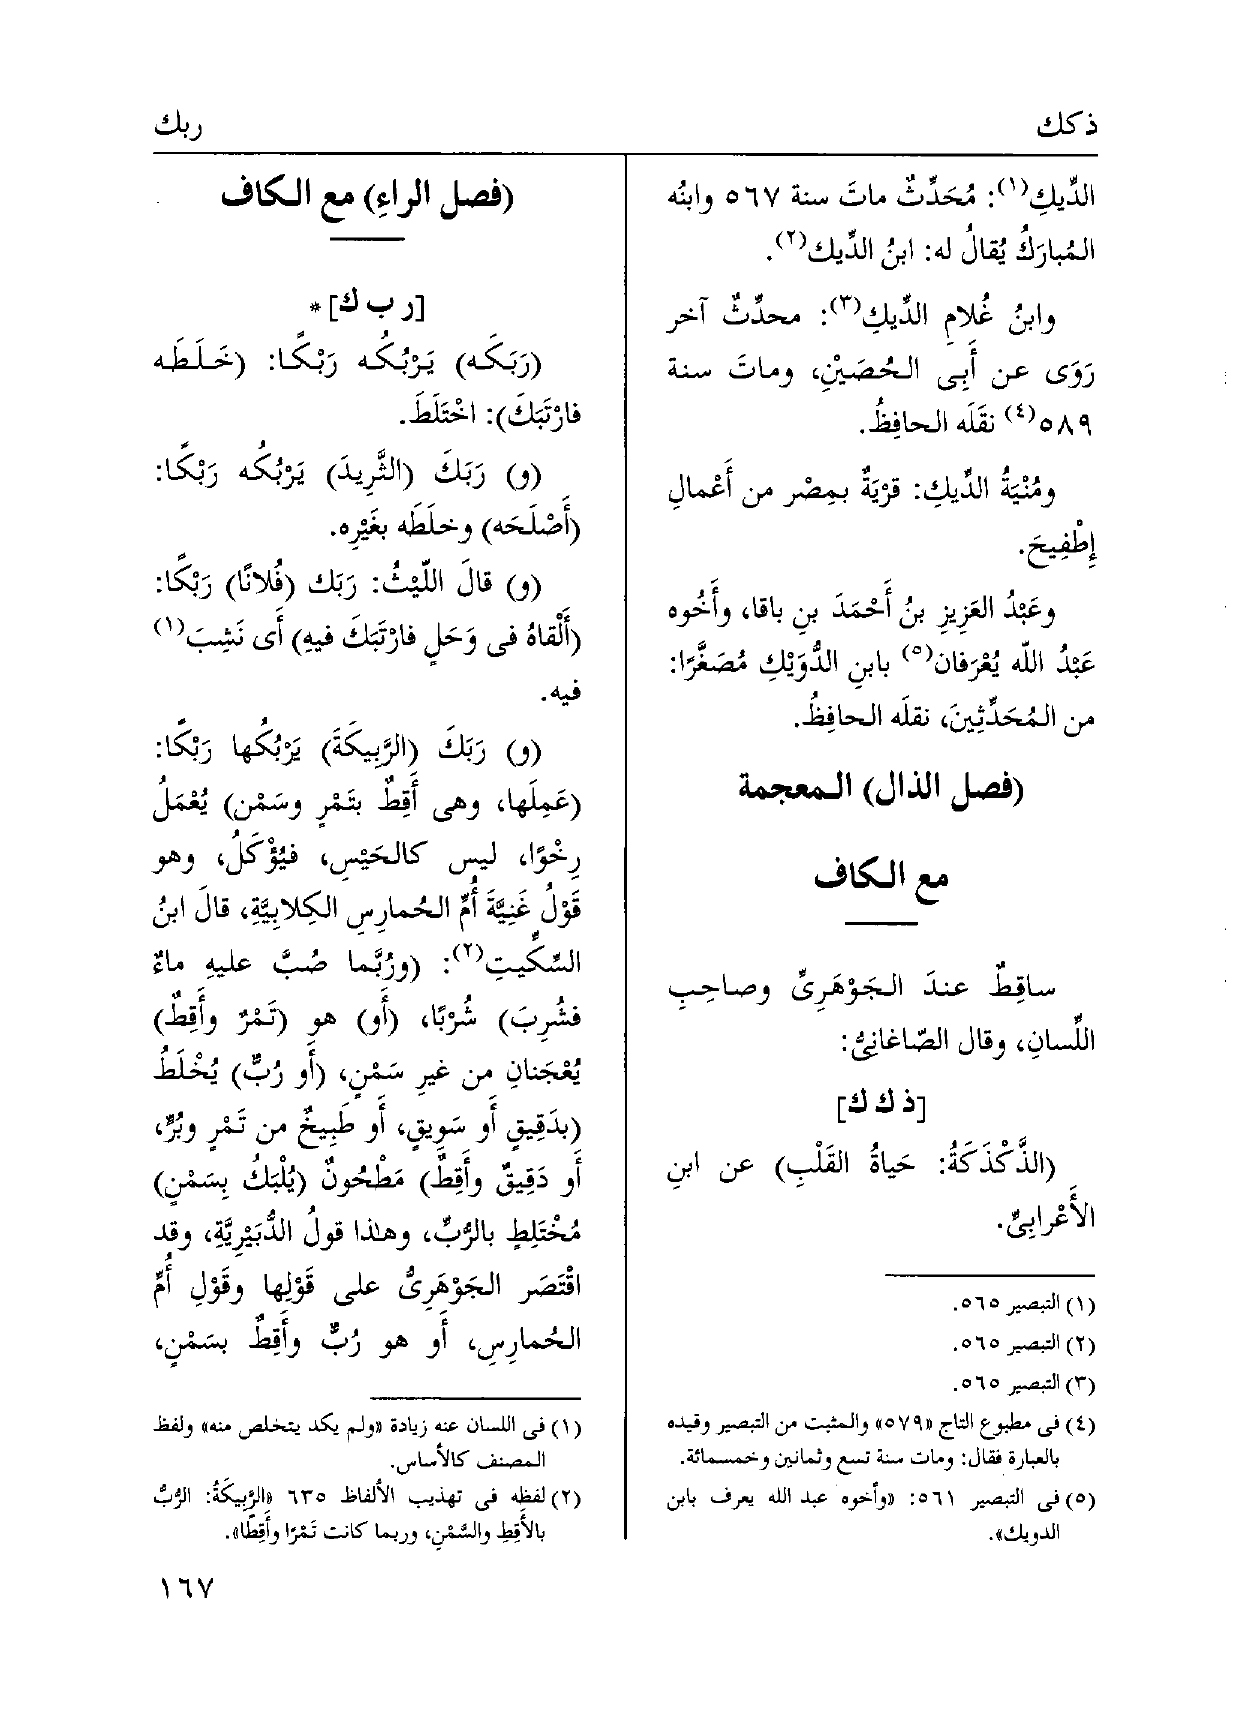 ذكك
ربك
الدِّيكِ(١): مُحَدِّثٌ ماتَ سنة ٥٦٧ وابنُه
المُبارَكُ يُقالُ له: ابنُ الدِّيك(٢).
وابنُ غُلامِ الدِّيكِ(٣): محدِّثٌ آخر
رَوَى عن أَبِى الحُصَيْنِ، وماتَ سنة
٥٨٩(٤) نقَلَه الحافِظُ.
ومُنْيَةُ الدِّيكِ: قرْيَةٌ بمِصْر من أَعْمالِ
إِطْفِيحَ.
وعَبْدُ العَزِيزِ بنُ أَحْمَدَ بنِ باقا، وأَخُوه
عَبْدُ الله يُعْرَفان(٥) بابنِ الدُّوَيْكِ مُصَغَّرًا:
من المُحَدِّثِينَ، نقلَه الحافِظُ.
(فصل الذال) المعجمة
مع الكاف
ساقِطٌ عندَ الجَوْهَرِىِّ وصاحِبِ
اللِّسانِ، وقال الصّاغانِىُّ:
[ذ ك ك]
(الذَّكْذَكَةُ: حَياةُ القَلْبِ) عن ابنِ
الأَعْرابِىِّ.
(١) التبصير ٥٦٥.
(٢) التبصير ٥٦٥.
(٣) التبصير ٥٦٥.
(٤) فى مطبوع التاج «٥٧٩» والمثبت من التبصير وقيده
بالعبارة فقال: ومات سنة تسع وثمانين وخمسمائة.
(٥) فى التبصير ٥٦١: «وأخوه عبد الله يعرف بابن
الدويك».
(فصل الراءِ) مع الكاف
[ر ب ك] *
(رَبَكَه) يَرْبُكُه رَبْكًا: (خَلَطَه
فارْتَبَكَ): اخْتَلَطَ.
(و) رَبَكَ (الثَّرِيدَ) يَرْبُكُه رَبْكًا:
(أَصْلَحَه) وخلَطَه بغَيْرِه.
(و) قالَ اللَّيْثُ: رَبَك (فُلانًا) رَبْكًا:
(أَلْقاهُ فى وَحَلٍ فارْتَبَكَ فيهِ) أَى نَشِبَ(١)
فيه.
(و) رَبَكَ (الرَّبِيكَةَ) يَرْبُكُها رَبْكًا:
(عَمِلَها، وهى أَقِطٌ بتَمْرٍ وسَمْن) يُعْمَلُ
رِخْوًا، ليس كالحَيْسِ، فيُؤْكَلُ، وهو
قَوْلُ غَنِيَّةَ أُمِّ الحُمارِسِ الكِلابِيَّةِ، قالَ ابنُ
السِّكِّيتِ(٢): (ورُبَّما صُبَّ عليهِ ماءٌ
فشُرِبَ) شُرْبًا، (أَو) هو (تَمْرٌ وأَقِطٌ)
يُعْجَنانِ من غيرِ سَمْنٍ، (أَو رُبٌّ) يُخْلَطُ
(بدَقِيقٍ أَو سَوِيقٍ، أَو طَبِيخٌ من تَمْرٍ وبُرٍّ،
أَو دَقِيقٌ وأَقِطٌ) مَطْحُونٌ (يُلْبَكُ بِسَمْنٍ)
مُخْتَلِطٍ بالرُّبِّ، وهٰذا قولُ الدُّبَيْرِيَّةِ، وقد
اقْتَصَر الجَوْهَرِىُّ على قَوْلِها وقَوْلِ أُمِّ
الحُمارِسِ، أَو هو رُبٌّ وأَقِطٌ بسَمْنٍ،
(١) فى اللسان عنه زيادة «ولم يكد يتخلص منه» ولفظ
المصنف كالأساس.
(٢) لفظه فى تهذيب الألفاظ ٦٣٥ «الرَّبِيكَةُ: الرُّبُّ
بالأَقِطِ والسَّمْنِ، وربما كانت تَمْرًا وأَقِطًا».
١٦٧